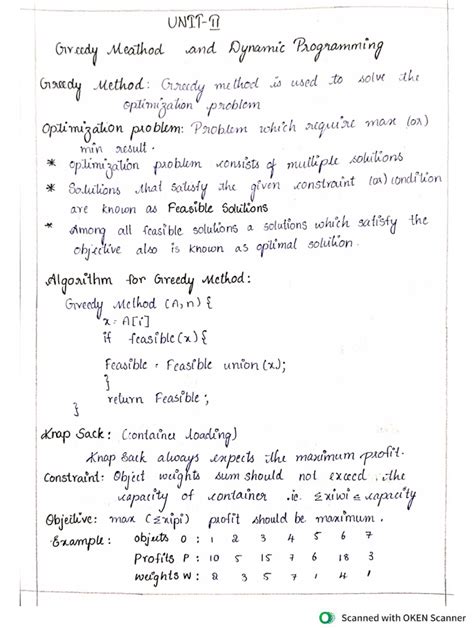 UNIT-II
Greedy Meathod and Dynamic Programming
Greedy Method: Greedy method is used to solve the
optimization problem
Optimization problem: Problem which require max (or)
min result.
* optimization problem consists of multiple solutions
* Solutions that satisfy the given constraint (or) condition
are known as Feasible Solutions
* Among all feasible solutions a solutions which satisfy the
objective also is known as optimal solution.
Algorithm for Greedy Method:
Greedy Method (A,n) {
x = A[i]
if feasible(x) {
Feasible = Feasible union (x);
}
return Feasible;
}
Knap Sack: (container loading)
Knap Sack always expects the maximum profit.
Constraint: Object weights sum should not exceed the
capacity of container .ie. Σxiwi ≤ capacity
Objective: max (Σxipi) profit should be maximum.
Example: objects O : 1 2 3 4 5 6 7
Profits P : 10 5 15 7 6 18 3
weights W : 2 3 5 7 1 4 1
Scanned with OKEN Scanner